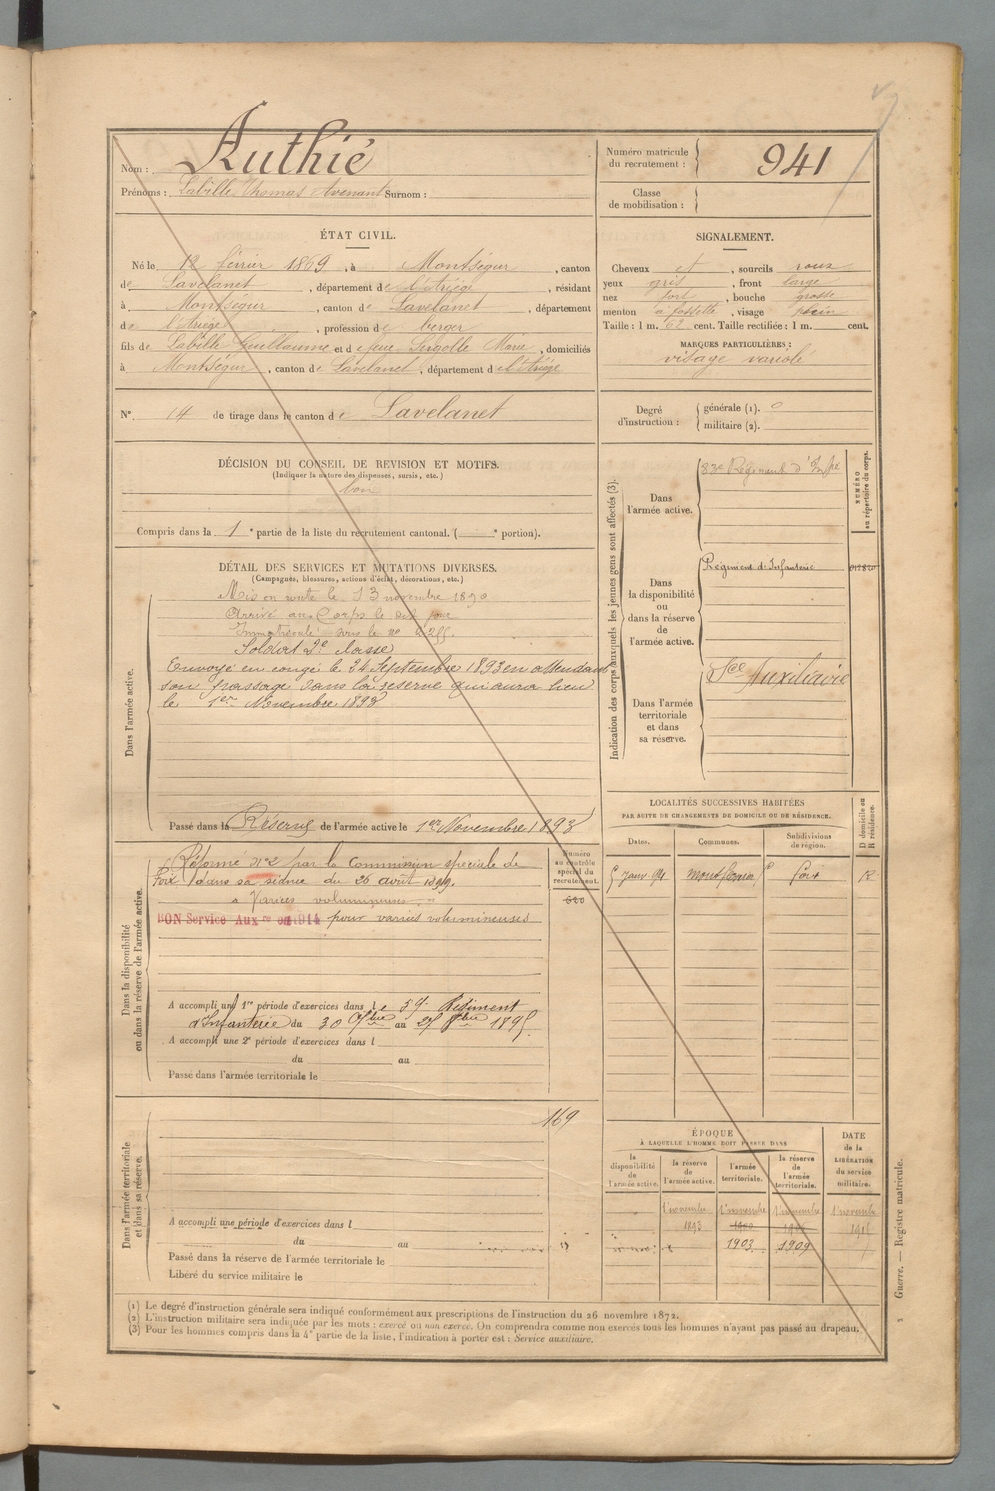 Nom : Authié
Prénoms : Labille Thomas Avenant Surnom :
Numéro matricule du recrutement : 941
Classe de mobilisation :
ÉTAT CIVIL.
Né le 12 février 1869, à Montségur, canton
de Lavelanet, département de l'Ariège, résidant
à Montségur, canton de Lavelanet, département
de l'Ariège, profession de berger
fils de Labille Guillaume et de feue Sirgolle Marie, domiciliés
à Montségur, canton de Lavelanet, département de l'Ariège
N° 14 de tirage dans le canton de Lavelanet
SIGNALEMENT.
Cheveux et, sourcils roux
yeux gris, front large
nez fort, bouche grosse
menton à fossette, visage plein
Taille : 1 m. 62 cent. Taille rectifiée : 1 m. cent.
MARQUES PARTICULIÈRES :
visage variolé
Degré d'instruction :
générale (1). 0
militaire (2).
DÉCISION DU CONSEIL DE REVISION ET MOTIFS.
(Indiquer la nature des dispenses, sursis, etc.)
bon
Compris dans la 1e partie de la liste du recrutement cantonal. ( e portion).
DÉTAIL DES SERVICES ET MUTATIONS DIVERSES.
(Campagnes, blessures, actions d'éclat, décorations, etc.)
Dans l'armée active.
Mis en route le 13 novembre 1890
Arrivé au Corps le dit jour
Immatriculé sous le no
Soldat 2e classe
Envoyé en congé le 24 Septembre 1893 en attendant
son passage dans la réserve qui aura lieu
le 1er Novembre 1893
Passé dans la Réserve de l'armée active le 1er Novembre 1893
Indication des corps auxquels les jeunes gens sont affectés (3).
NUMÉRO au répertoire du corps.
Dans l'armée active.
83e Régiment d'Infie
Dans la disponibilité ou dans la réserve de l'armée active.
Régiment d'Infanterie
Dans l'armée territoriale et dans sa réserve.
Sce Auxiliaire
LOCALITÉS SUCCESSIVES HABITÉES
PAR SUITE DE CHANGEMENTS DE DOMICILE OU DE RÉSIDENCE.
Dates. Communes. Subdivisions de région. D domicile ou R résidence.
5 Janv. 94 Foix R
Dans la disponibilité ou dans la réserve de l'armée active.
Numéro au contrôle spécial du recrutement.
620
Réformé No 2 par la Commission spéciale de
Foix dans sa séance du 26 août 1899.
Varices volumineuses
BON Service Auxre en 1914 pour varices volumineuses
A accompli une 1re période d'exercices dans le 59e Régiment
d'Infanterie du 30 7bre au 27 8bre 1895
A accompli une 2e période d'exercices dans l
du au
Passé dans l'armée territoriale le
Dans l'armée territoriale et dans sa réserve.
169
A accompli une période d'exercices dans l
du au
Passé dans la réserve de l'armée territoriale le
Libéré du service militaire le
ÉPOQUE
À LAQUELLE L'HOMME DOIT PASSER DANS
la disponibilité de l'armée active.
la réserve de l'armée active.
l'armée territoriale.
la réserve de l'armée territoriale.
DATE de la LIBÉRATION du service militaire.
1 novembre 1 novembre 1 novembre 1 novembre
1893 1900 1915
1903 1909
(1) Le degré d'instruction générale sera indiqué conformément aux prescriptions de l'instruction du 26 novembre 1872.
(2) L'instruction militaire sera indiquée par les mots : exercé ou non exercé. On comprendra comme non exercés tous les hommes n'ayant pas passé au drapeau.
(3) Pour les hommes compris dans la 4e partie de la liste, l'indication à porter est : Service auxiliaire.
Guerre. — Registre matricule.